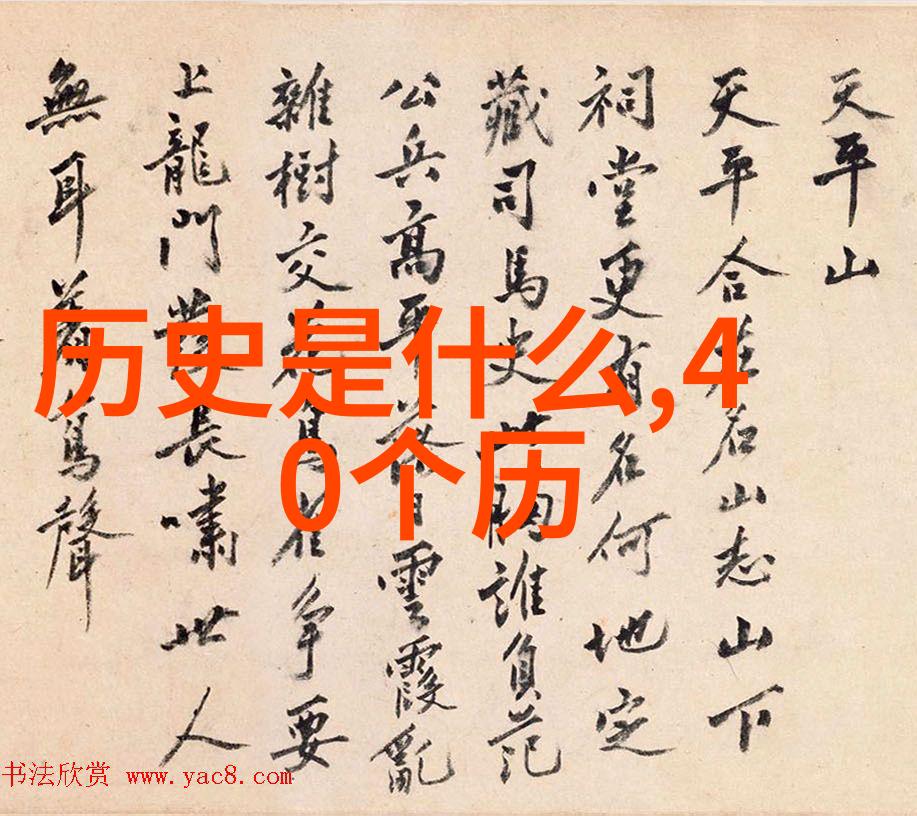 天平山
天平合在名山志山下
祠堂更有名何地定
藏司馬史此胸誰負范
公兵高平落日雲霞亂
雜樹交花鳥雀爭要
上龍門發長嘯世人
無耳聲
历史是什么,4
0个历
书法欣赏 www.yac8.com